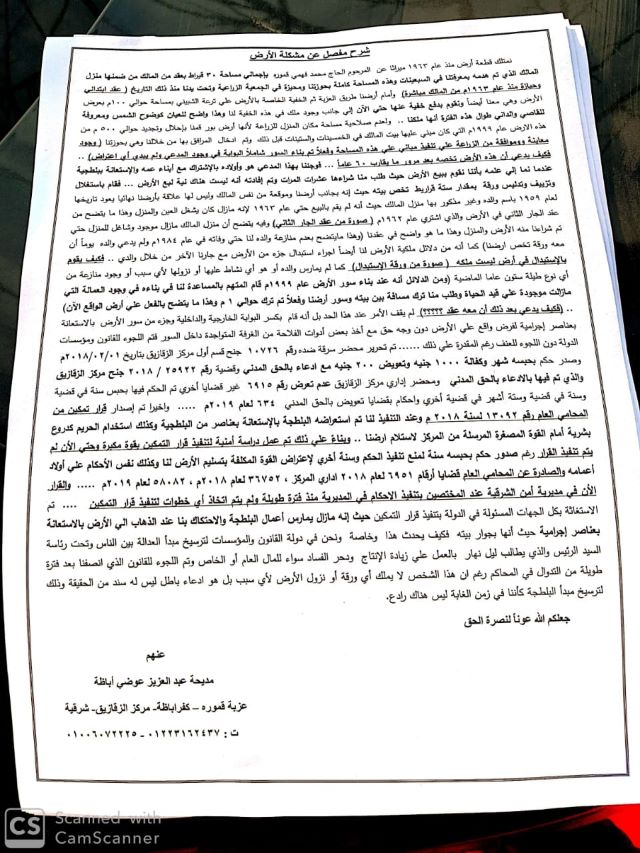 شرح مفصل عن مشكلة الأرض
نمتلك قطعة أرض منذ عام ١٩٦٣ ميراثا عن المرحوم الحاج محمد فهمي قموره بإجمالي مساحة ٣٠ قيراط بعقد من المالك من ضمنها منزل
المالك الذي تم هدمه بمعرفتنا في السبعينات وهذه المساحة كاملة بحوزتنا ومحيزة في الجمعية الزراعية وتحت يدنا منذ ذلك التاريخ ( عقد ابتدائي
وحيازة منذ عام ١٩٦٣م من المالك مباشرة) وأمام أرضنا طريق العزبة ثم الخفية الخاصة بالأرض علي ترعة الشبيني بمساحة حوالي ١٠٠م بعرض
الأرض وهي معنا أيضاً ونقوم بدفع خفية عنها حتي الآن إلي جانب وجود ملك في هذه الخفية لنا وهذا واضح للعيان كوضوح الشمس ومعروفة
للقاصي والداني طوال هذه الفترة أنها ملكنا .. ولعدم صلاحية مساحة مكان المنزل للزراعة لأنها أرض بور قمنا بإحلال وتجديد حوالي ٥٠٠ م من
هذه الأرض عام ١٩٩٩م التي كان مبني عليها بيت المالك في الخمسينات والستينات قبل ذلك وتم ادخال المرافق بها من خلالنا وهي بحوزتنا ( وجود
معاينة وموافقة من الزراعة علي تنفيذ مباني علي هذه المساحة وفعلاً تم بناء السور شاملاً البوابة في وجود المدعي ولم يبدي أي اعتراض) ..
فكيف يدعي بأن هذه الأرض تخصه بعد مرور ما يقارب ٦٠ عاماً .. فوجئنا بهذا المدعي هو وأولاده بالإشتراك مع أبناء عمه والإستعانة ببلطجية
عندما نما إلي علمه بأننا نقوم ببيع الأرض حيث طلب منا شراءها عشرات المرات وتم إفادته أنه ليست هناك نية لبيع الأرض ... فقام باستغلال
وتزييف وتدليس ورقة بمقدار ستة قراريط تخص بيته حيث إنه بجانب أرضنا وموقعة من نفس المالك وليس لها علاقة بأرضنا نهائيا يعود تاريخها
لعام ١٩٥٩ باسم والده وغير مذكور بها منزل المالك حيث أنه لم يقم بالبيع حتي عام ١٩٦٣ لإنه مازال كان يشغل العين والمنزل وهذا ما يتضح من
عقد الجار الثاني في الأرض والذي اشتري عام ١٩٦٢م ( صورة من عقد الجار الثاني) وفيه يتضح أن منزل المالك مازال موجود وشاغل للمنزل حتي
تم شراءنا منه الأرض والمنزل وهذا ما هو واضح في عقدنا (هذا مايتضح بعدم منازعة والده لنا حتي وفاته في عام ١٩٨٤م ولم يدعي والده يوماً أن
معه ورقة تخص أرضنا) كما أنه من دلائل ملكية الأرض لنا أيضاً اجراء استبدال جزء من الأرض مع جارنا الآخر من خلال والدي .. فكيف يقوم
بالإستبدال في أرض ليست ملكه ( صورة من ورقة الإستبدال) كما لم يمارس والده أو هو أي نشاط عليها أو نزولها لأي سبب أو وجود منازعة من
أي نوع طيلة ستون عاما الماضية (ومن الدلائل أنه عند بناء سور الأرض عام ١٩٩٩م قام المتهم بالمساعدة لنا في بناءه في وجود العمالة التي
مازالت موجودة علي قيد الحياة وطلب منا ترك مسافة بين بيته وسور أرضنا وفعلاً تم ترك حوالي ١ م وهذا ما يتضح بالفعل علي أرض الواقع الآن)
.. (فكيف يدعي بعد ذلك أن معه عقد ؟؟؟؟؟) .. لم يقف الأمر عند هذا الحد بل أنه قام بكسر البوابة الخارجية والداخلية وجزء من سور الأرض بالاستعانة
بعناصر إجرامية لفرض واقع علي الأرض دون وجه حق مع أخذ بعض أدوات الفلاحة من الغرفة المتواجدة داخل السور فتم اللجوء للقانون ومؤسسات
الدولة دون اللجوء للعنف رغم المقدرة علي ذلك ..... تم تحرير محضر سرقة ضده رقم ١٠٧٢٦ جنح قسم أول مركز الزقازيق بتاريخ ٢٠١٨/٠٢/٠١م
وصدر حكم بحبسه شهر وكفالة ١٠٠٠ جنيه وتعويض ٢٠٠ جنيه مع ادعاء بالحق المدني وقضية رقم ٢٥٩٢٢ / ٢٠١٨ جنح مركز الزقازيق
والذي تم فيها بالادعاء بالحق المدني ومحضر إداري مركز الزقازيق عدم تعرض رقم ٦٩١٥ غير قضايا أخري تم الحكم فيها بحبس سنة في قضية
وسنة في قضية وستة أشهر في قضية أخري واحكام بقضايا تعويض بالحق المدني ٦٣٤ لعام ٢٠١٩م ..... واخيرا تم إصدار قرار تمكين من
المحامي العام رقم ١٣٠٩٢ لسنة ٢٠١٨ م وعند التنفيذ لنا تم استعراضه البلطجة بالإستعانة بعناصر من البلطجية وكذلك استخدام الحريم كدروع
بشرية أمام القوة المصغرة المرسلة من المركز لاستلام ارضنا .. وبناءً علي ذلك تم عمل دراسة أمنية لتنفيذ قرار التمكين بقوة مكبرة وحتي الأن لم
يتم تنفيذ القرار رغم صدور حكم بحبسه سنة لمنع تنفيذ الحكم وسنة أخري لإعتراض القوة المكلفة بتسليم الأرض لنا وكذلك نفس الأحكام علي أولاد
أعمامه والصادرة عن المحامي العام قضايا أرقام ٦٩٥١ لعام ٢٠١٨ اداري المركز ، ٣٦٧٥٢ لعام ٢٠١٨م ، ٥٨٠٨٢ لعام ٢٠١٩م ..... والقرار
الأن في مديرية أمن الشرقية عند المختصين بتنفيذ الاحكام في المديرية منذ فترة طويلة ولم يتم اتخاذ أي خطوات لتنفيذ قرار التمكين ..... تم
الاستغاثة بكل الجهات المسئولة في الدولة بتنفيذ قرار التمكين حيث إنه مازال يمارس أعمال البلطجة والاحتكاك بنا عند الذهاب الي الأرض بالاستعانة
بعناصر إجرامية حيث أنها بجوار بيته فكيف يحدث هذا وخاصة ونحن في دولة القانون والمؤسسات لترسيخ مبدأ العدالة بين الناس وتحت رئاسة
السيد الرئيس والذي يطالب ليل نهار بالعمل علي زيادة الإنتاج ودحر الفساد سواء للمال العام أو الخاص وتم اللجوء للقانون الذي انصفنا بعد فترة
طويلة من التداول في المحاكم رغم ان هذا الشخص لا يملك أي ورقة أو نزول الأرض لأي سبب بل هو ادعاء باطل ليس له سند من الحقيقة وذلك
لترسيخ مبدأ البلطجة كأننا في زمن الغابة ليس هناك رادع.
جعلكم الله عوناً لنصرة الحق
عنهم
مديحة عبد العزيز عوضي أباظة
عزبة قموره – كفراباظة- مركز الزقازيق- شرقية
ت : ٠١٢٢٣١٦٢٤٣٧ - ٠١٠٠٦٠٧٢٢٢٥
CS Scanned with
CamScanner